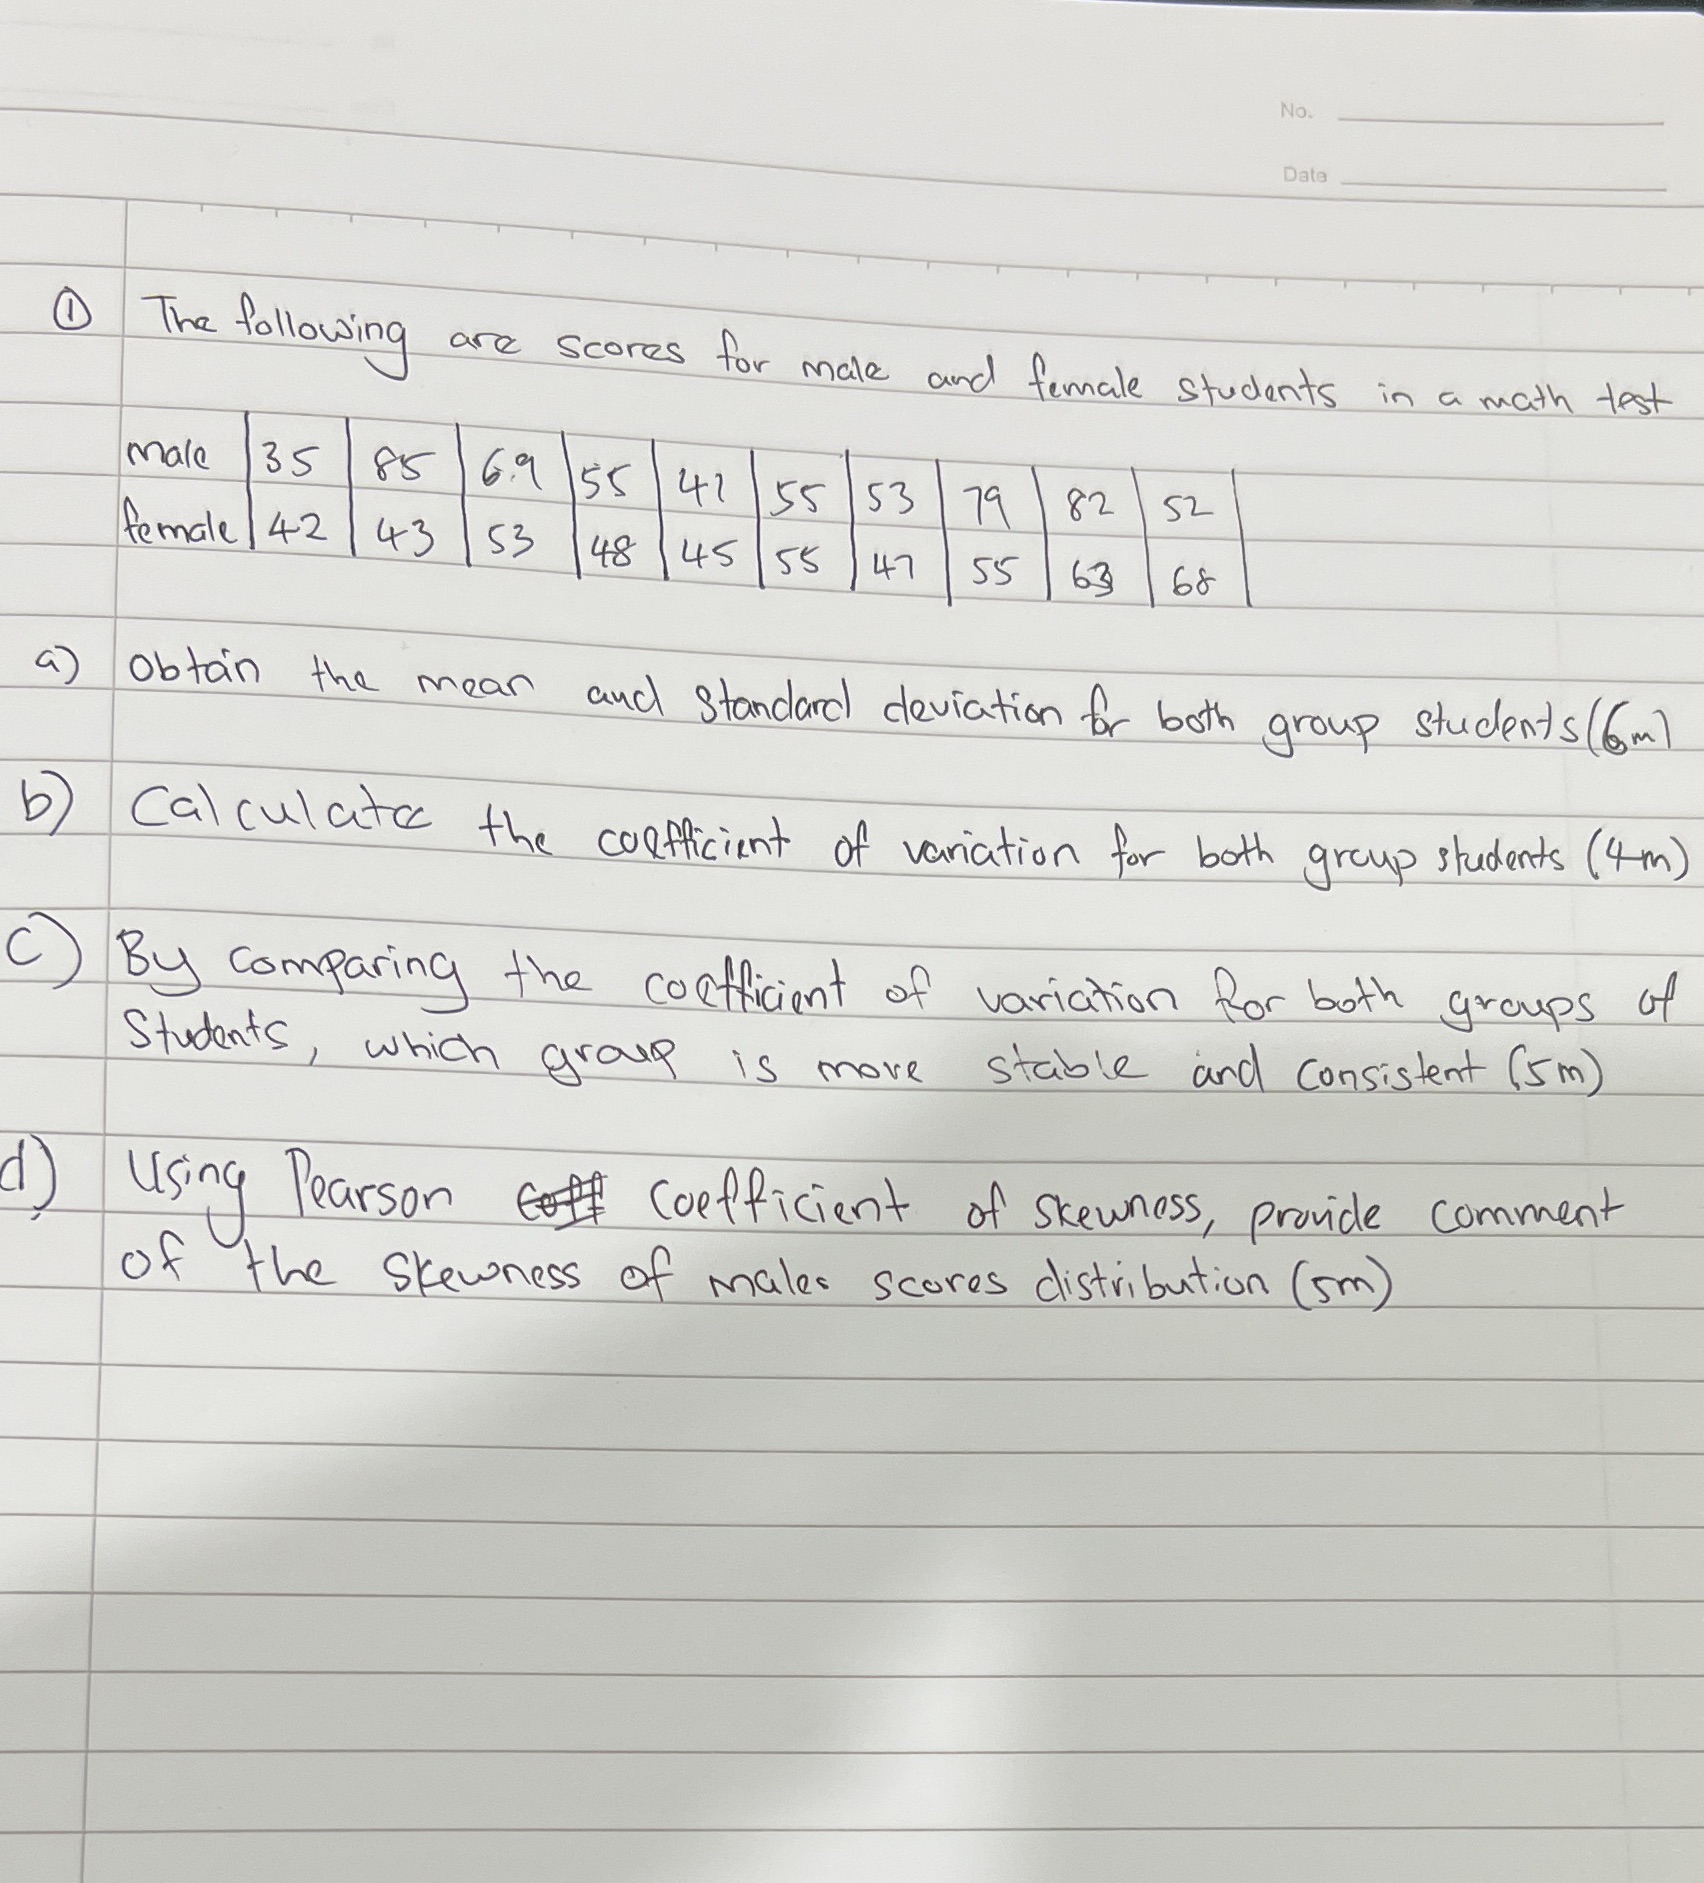 No.
Date
① The following are scores for male and female students in a math test
male 35 85 69 55 41 55 53 79 82 52
female 42 43 53 48 45 55 47 55 63 68
a) Obtain the mean and standard deviation for both group students (6m)
b) Calculate the coefficient of variation for both group students (4m)
c) By comparing the coefficient of variation for both groups of
Students, which group is more stable and consistent (5m)
d) Using Pearson Coefficient of skewness, provide comment
of the skewness of males scores distribution (5m)